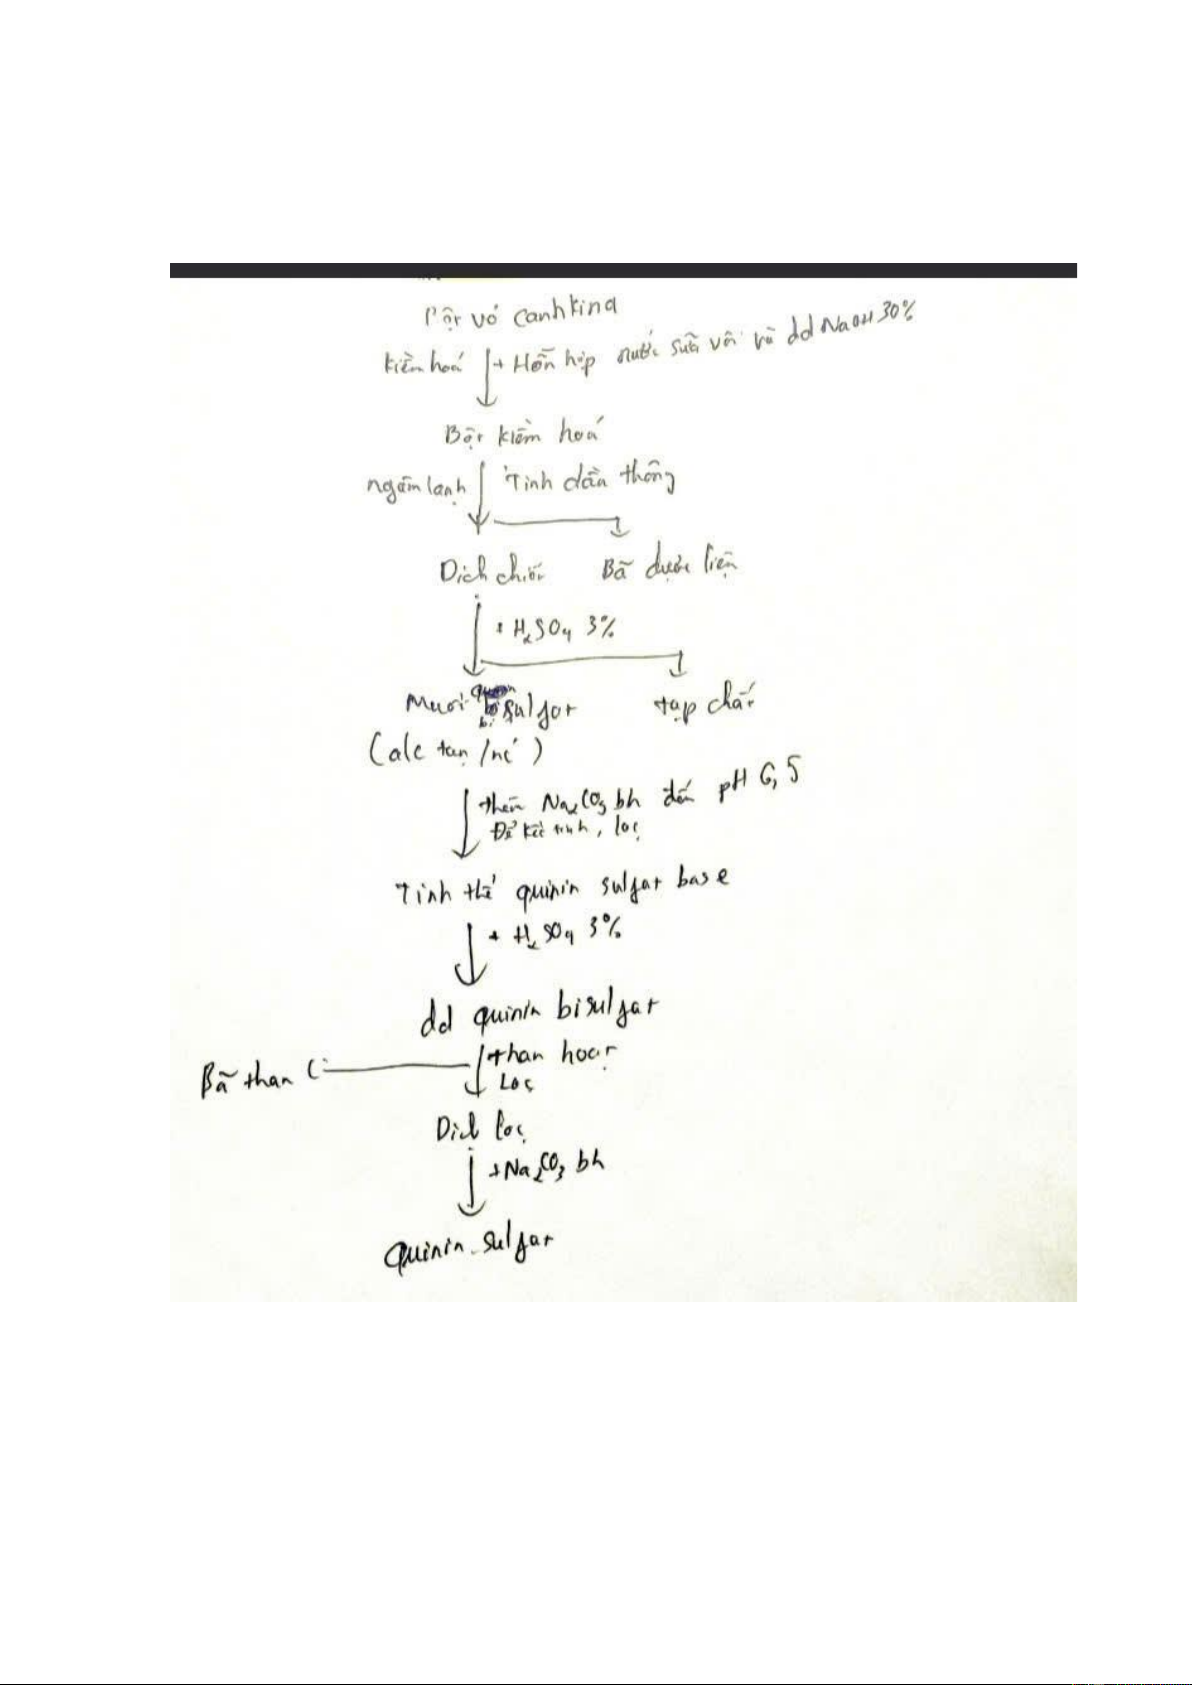 Bột vỏ canhkina
kiềm hoá + Hỗn hợp nước sữa vôi và dd NaOH 30%
Bột kiềm hoá
ngâm lạnh Tinh dầu thông
Dịch chiết Bã dược liệu
+ H₂SO₄ 3%
Muối quinin bisulfat tạp chất
(alc tan/nc)
thêm Na₂CO₃ bh đến pH 6,5
Để kết tinh, lọc
Tinh thể quinin sulfat base
+ H₂SO₄ 3%
dd quinin bisulfat
Bã than +than hoạt
Lọc
Dịch lọc
+Na₂CO₃ bh
Quinin sulfat